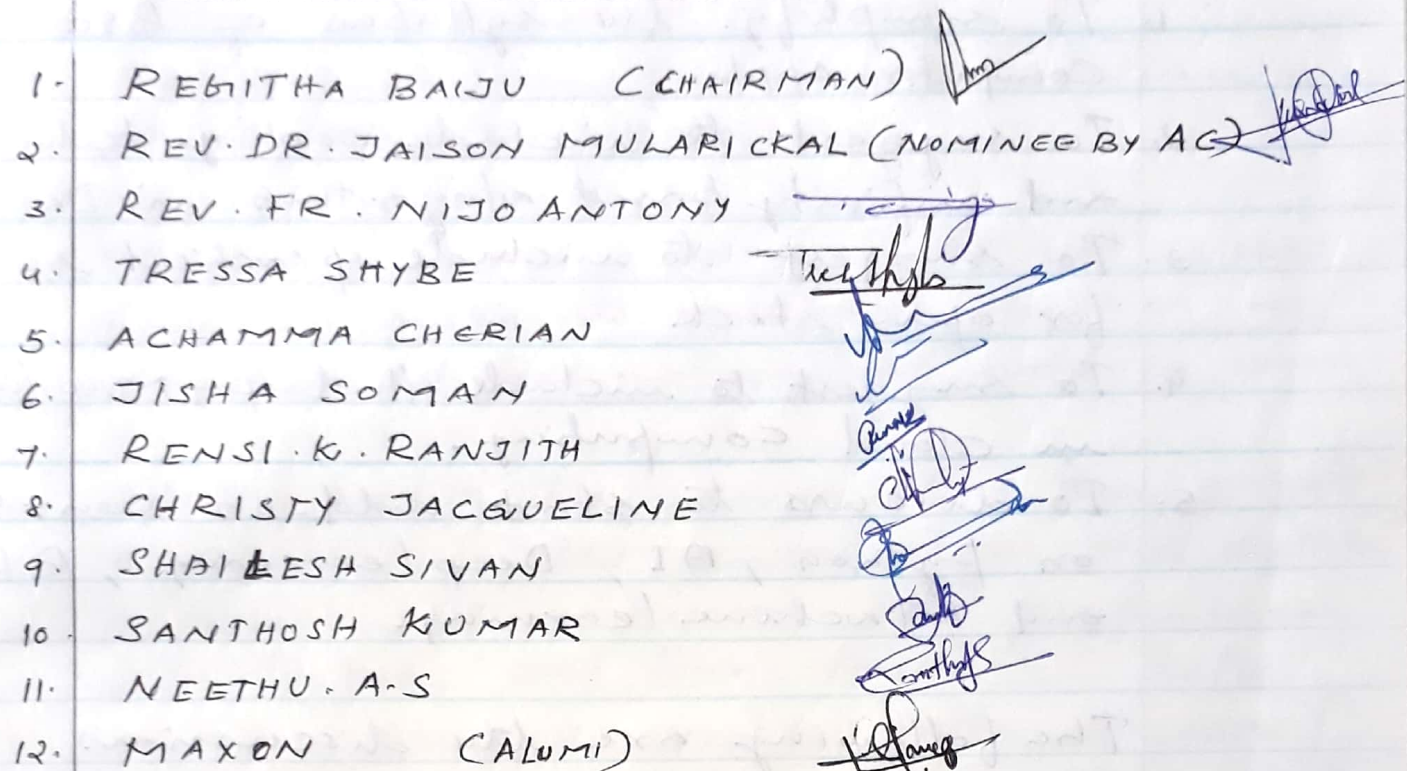 1. REGITHA BAIJU (CHAIRMAN)
2. REV. DR. JAISON MULARICKAL (NOMINEE BY AC)
3. REV. FR. NIJO ANTONY
4. TRESSA SHYBE
5. ACHAMMA CHERIAN
6. JISHA SOMAN
7. RENSI. K. RANJITH
8. CHRISTY JACQUELINE
9. SHAILESH SIVAN
10. SANTHOSH KUMAR
11. NEETHU. A. S
12. MAXON (ALUMI)